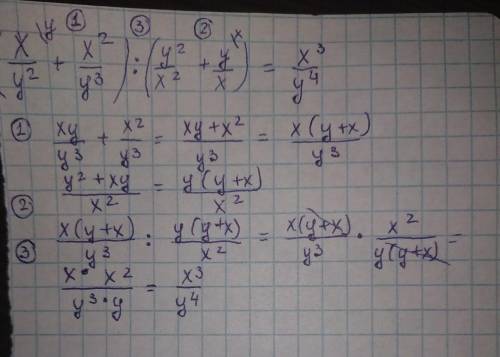 ① ③ ②
(x/y² \y + x²/y³) : (y²/x² + y/x \x) = x³/y⁴
① xy/y³ + x²/y³ = (xy+x²)/y³ = x(y+x)/y³
② (y²+xy)/x² = y(y+x)/x²
③ x(y+x)/y³ : y(y+x)/x² = x(y+x)/y³ · x²/y(y+x) =
x · x²/y³·y = x³/y⁴